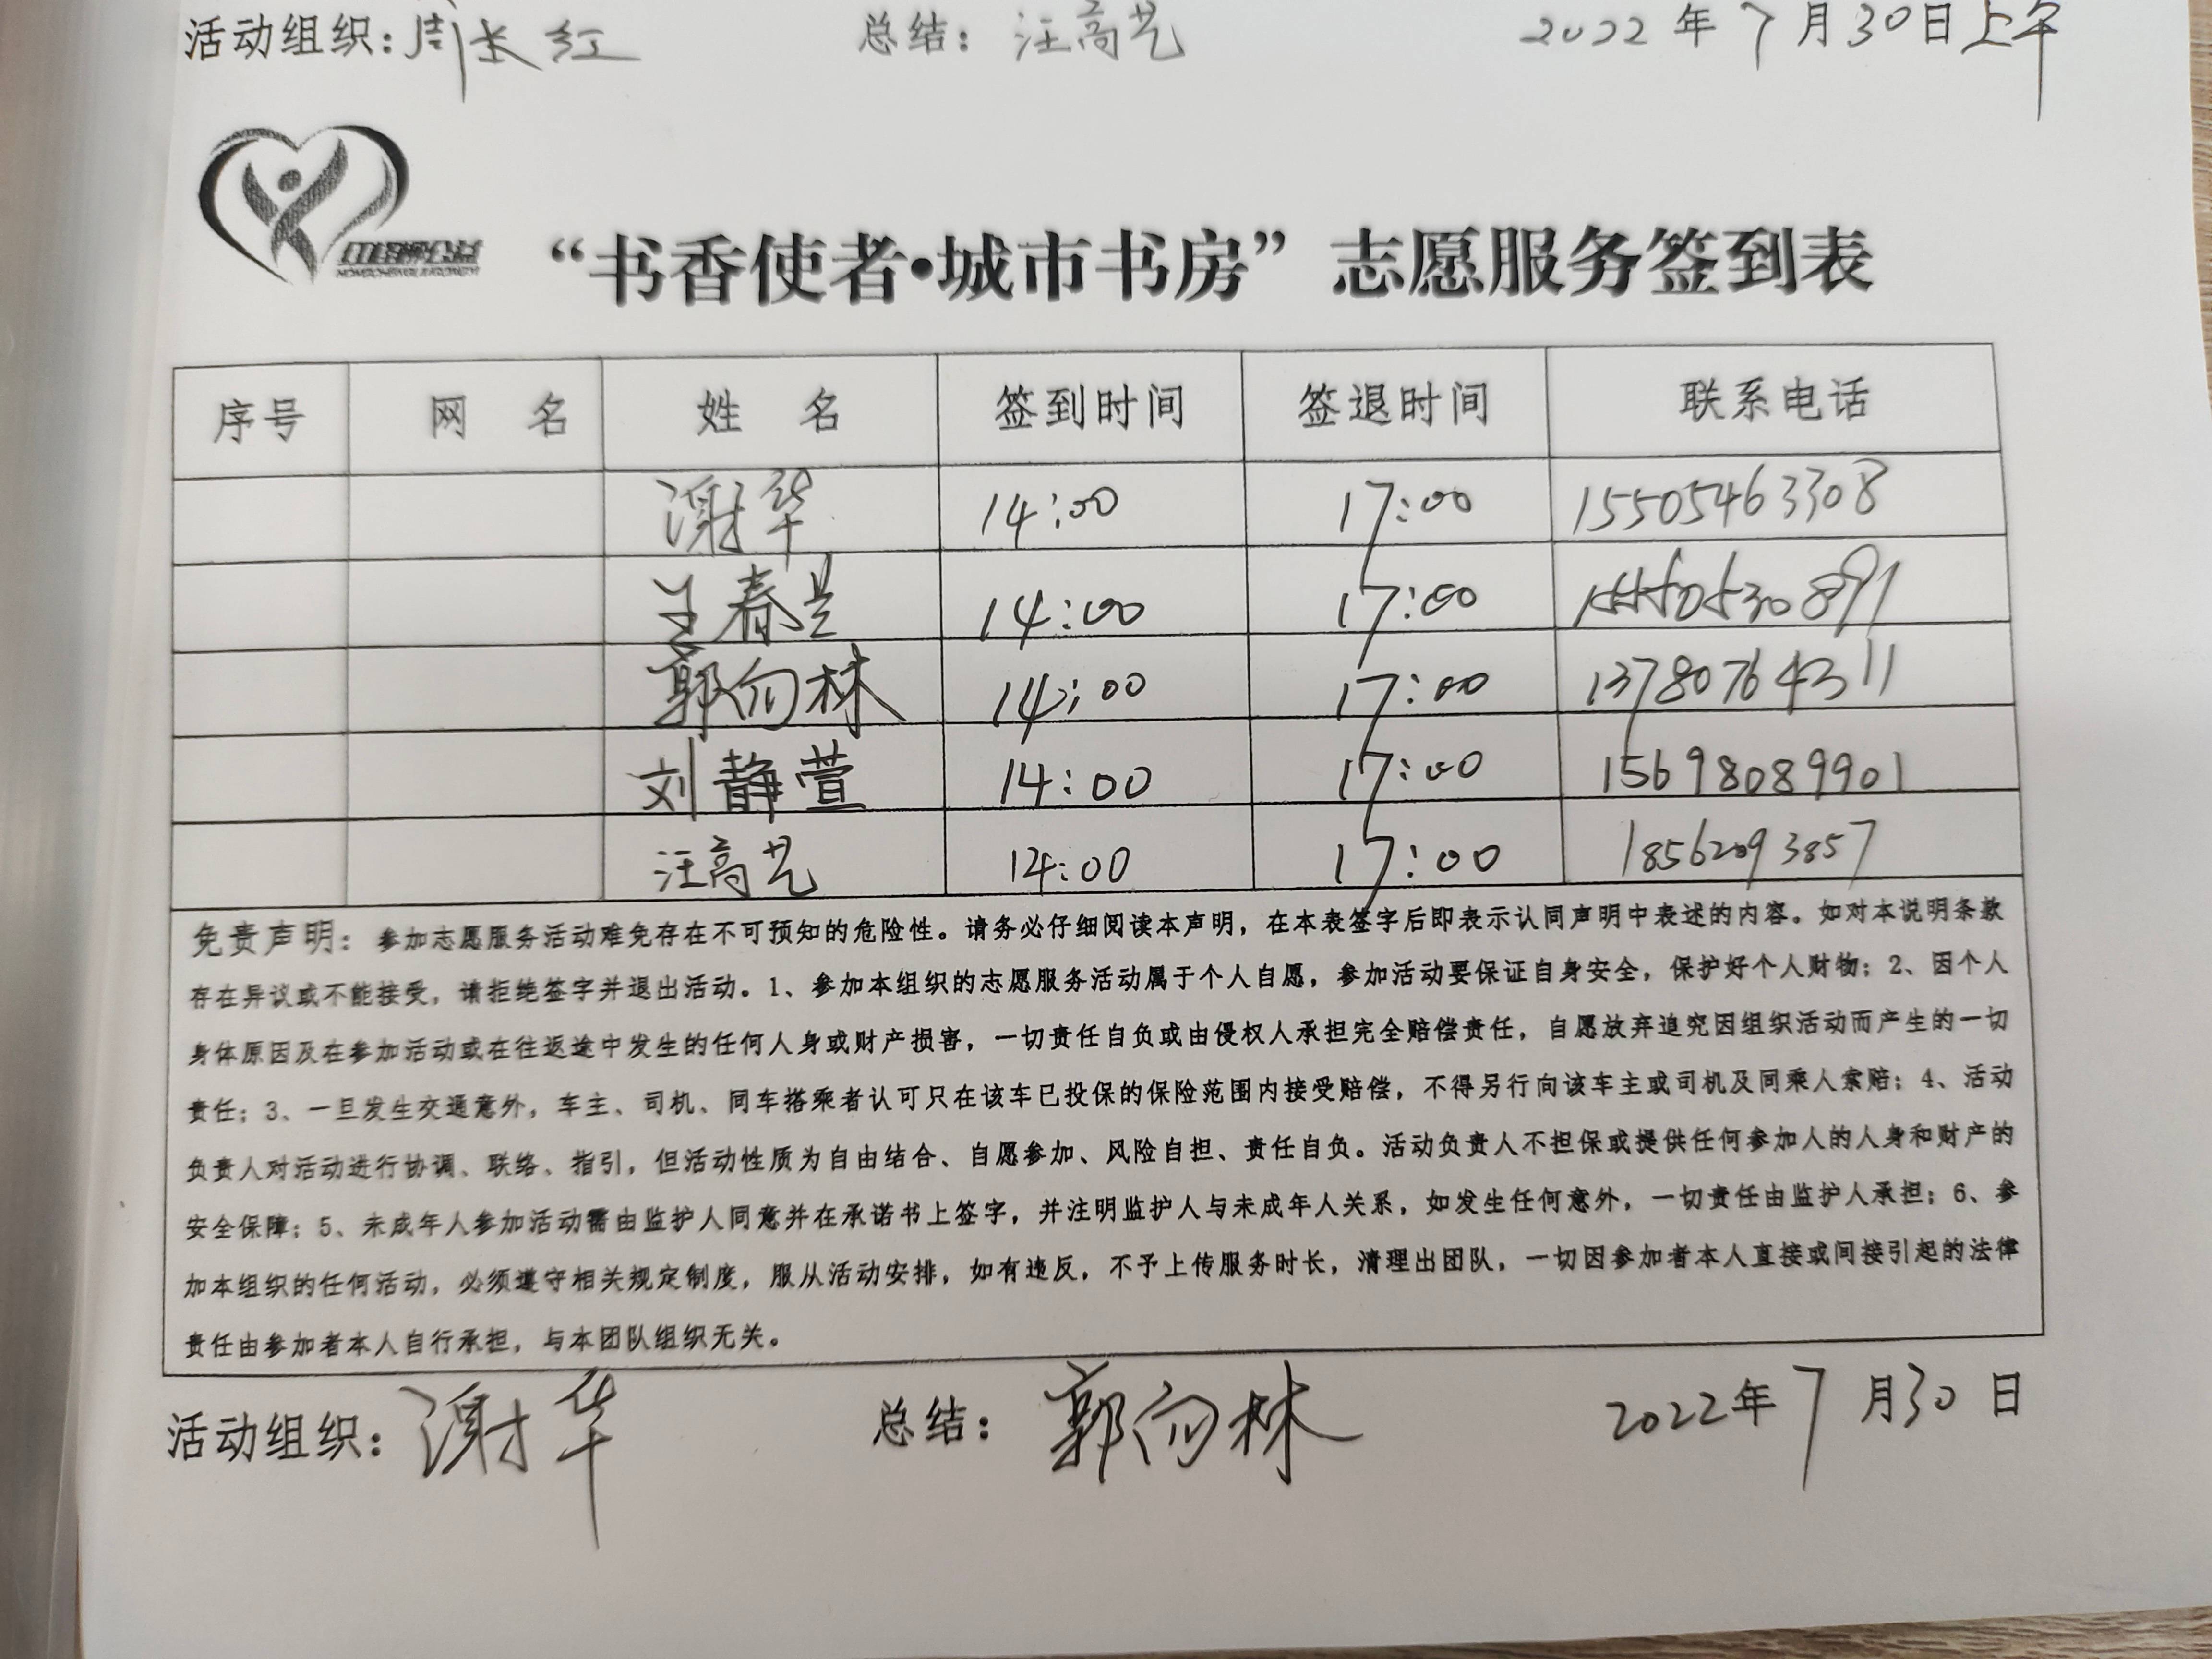 活动组织：周长红 总结：汪高艺 2022年7月30日上午
“书香使者·城市书房”志愿服务签到表
序号 网 名 姓 名 签到时间 签退时间 联系电话
谢华 14:00 17:00 15505463308
王春兰 14:00 17:00
郭向林 14:00 17:00 13780764311
刘静萱 14:00 17:00 15698089901
汪高艺 14:00 17:00 18562093857
免责声明：参加志愿服务活动难免存在不可预知的危险性。请务必仔细阅读本声明，在本表签字后即表示认同声明中表述的内容。如对本说明条款
存在异议或不能接受，请拒绝签字并退出活动。1、参加本组织的志愿服务活动属于个人自愿，参加活动要保证自身安全，保护好个人财物；2、因个人
身体原因及在参加活动或在往返途中发生的任何人身或财产损害，一切责任自负或由侵权人承担完全赔偿责任，自愿放弃追究因组织活动而产生的一切
责任；3、一旦发生交通意外，车主、司机、同车搭乘者认可只在该车已投保的保险范围内接受赔偿，不得另行向该车主或司机及同乘人索赔；4、活动
负责人对活动进行协调、联络、指引，但活动性质为自由结合、自愿参加、风险自担、责任自负。活动负责人不担保或提供任何参加人的人身和财产的
安全保障；5、未成年人参加活动需由监护人同意并在承诺书上签字，并注明监护人与未成年人关系，如发生任何意外，一切责任由监护人承担；6、参
加本组织的任何活动，必须遵守相关规定制度，服从活动安排，如有违反，不予上传服务时长，清理出团队，一切因参加者本人直接或间接引起的法律
责任由参加者本人自行承担，与本团队组织无关。
活动组织：谢华 总结：郭向林 2022年7月30日